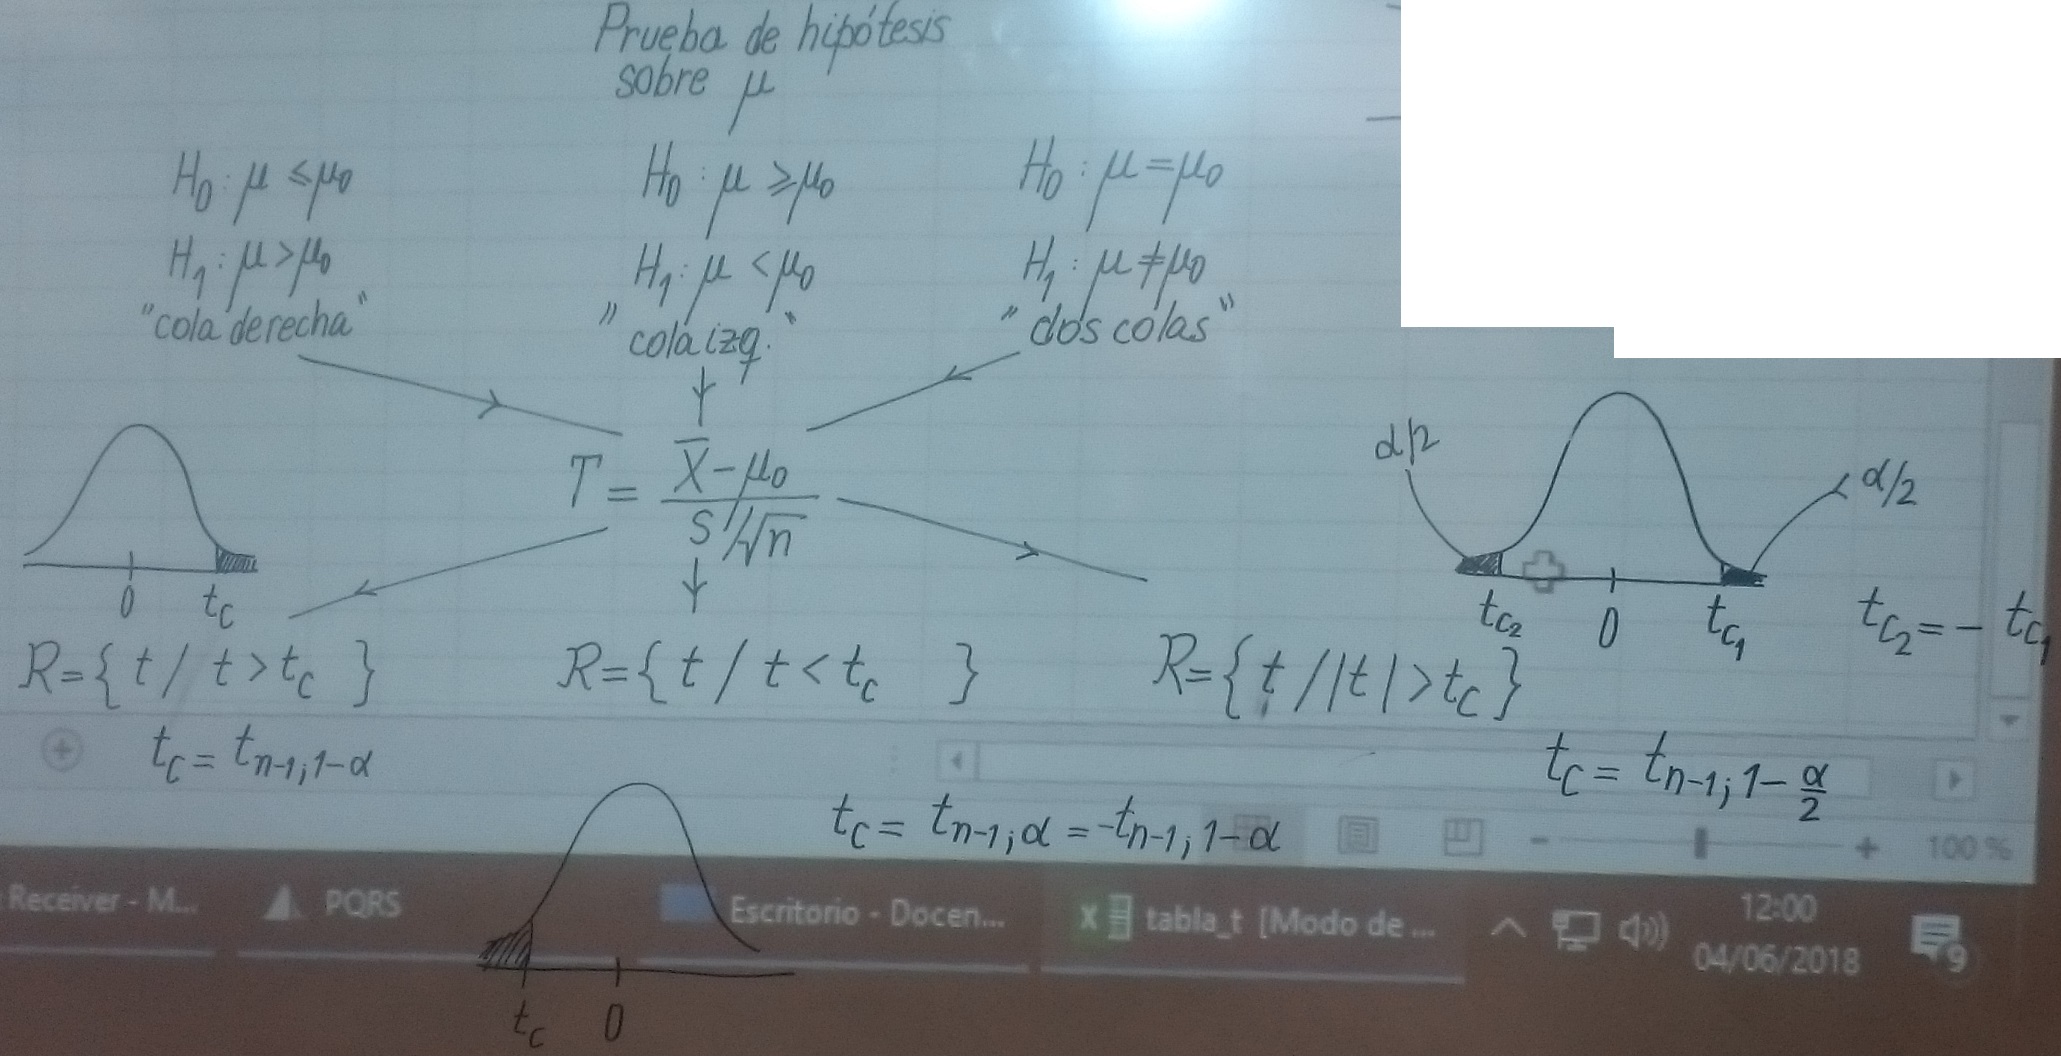 Prueba de hipótesis
sobre μ
H₀: μ ≤ μ₀
H₁: μ > μ₀
"cola derecha"
H₀: μ ≥ μ₀
H₁: μ < μ₀
"cola izq."
H₀: μ = μ₀
H₁: μ ≠ μ₀
"dos colas"
T = (X̄ - μ₀) / (S/√n)
0 t_c
R = { t / t > t_c }
t_c = t_{n-1; 1-α}
R = { t / t < t_c }
t_c = t_{n-1; α} = -t_{n-1; 1-α}
t_c 0
α/2
α/2
t_{c₂} 0 t_{c₁}
t_{c₂} = - t_{c₁}
R = { t / |t| > t_c }
t_c = t_{n-1; 1-α/2}
100 %
Receiver - M...
PQRS
Escritorio - Docen...
tabla_t [Modo de ...
12:00
04/06/2018
9